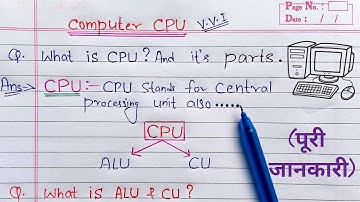 Page No.:
Date: / /
Computer CPU V.V.I
Q. What is CPU? And it's parts.
Ans→ CPU:- CPU Stands for Central
processing unit also......
CPU
ALU CU
(पूरी
जानकारी)
Q. What is ALU & CU?